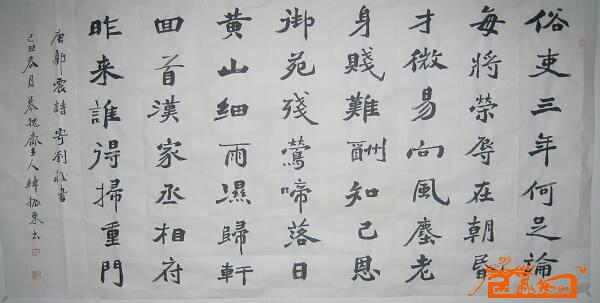 俗吏三年何足論
每將榮辱在朝昏
才微易向風塵老
身賤難酬知己恩
御苑殘鶯啼落日
黄山細雨濕歸軒
回首漢家丞相府
昨来誰得掃重門
唐郭震詩寄劉校書
己丑春月齋主人韓東书